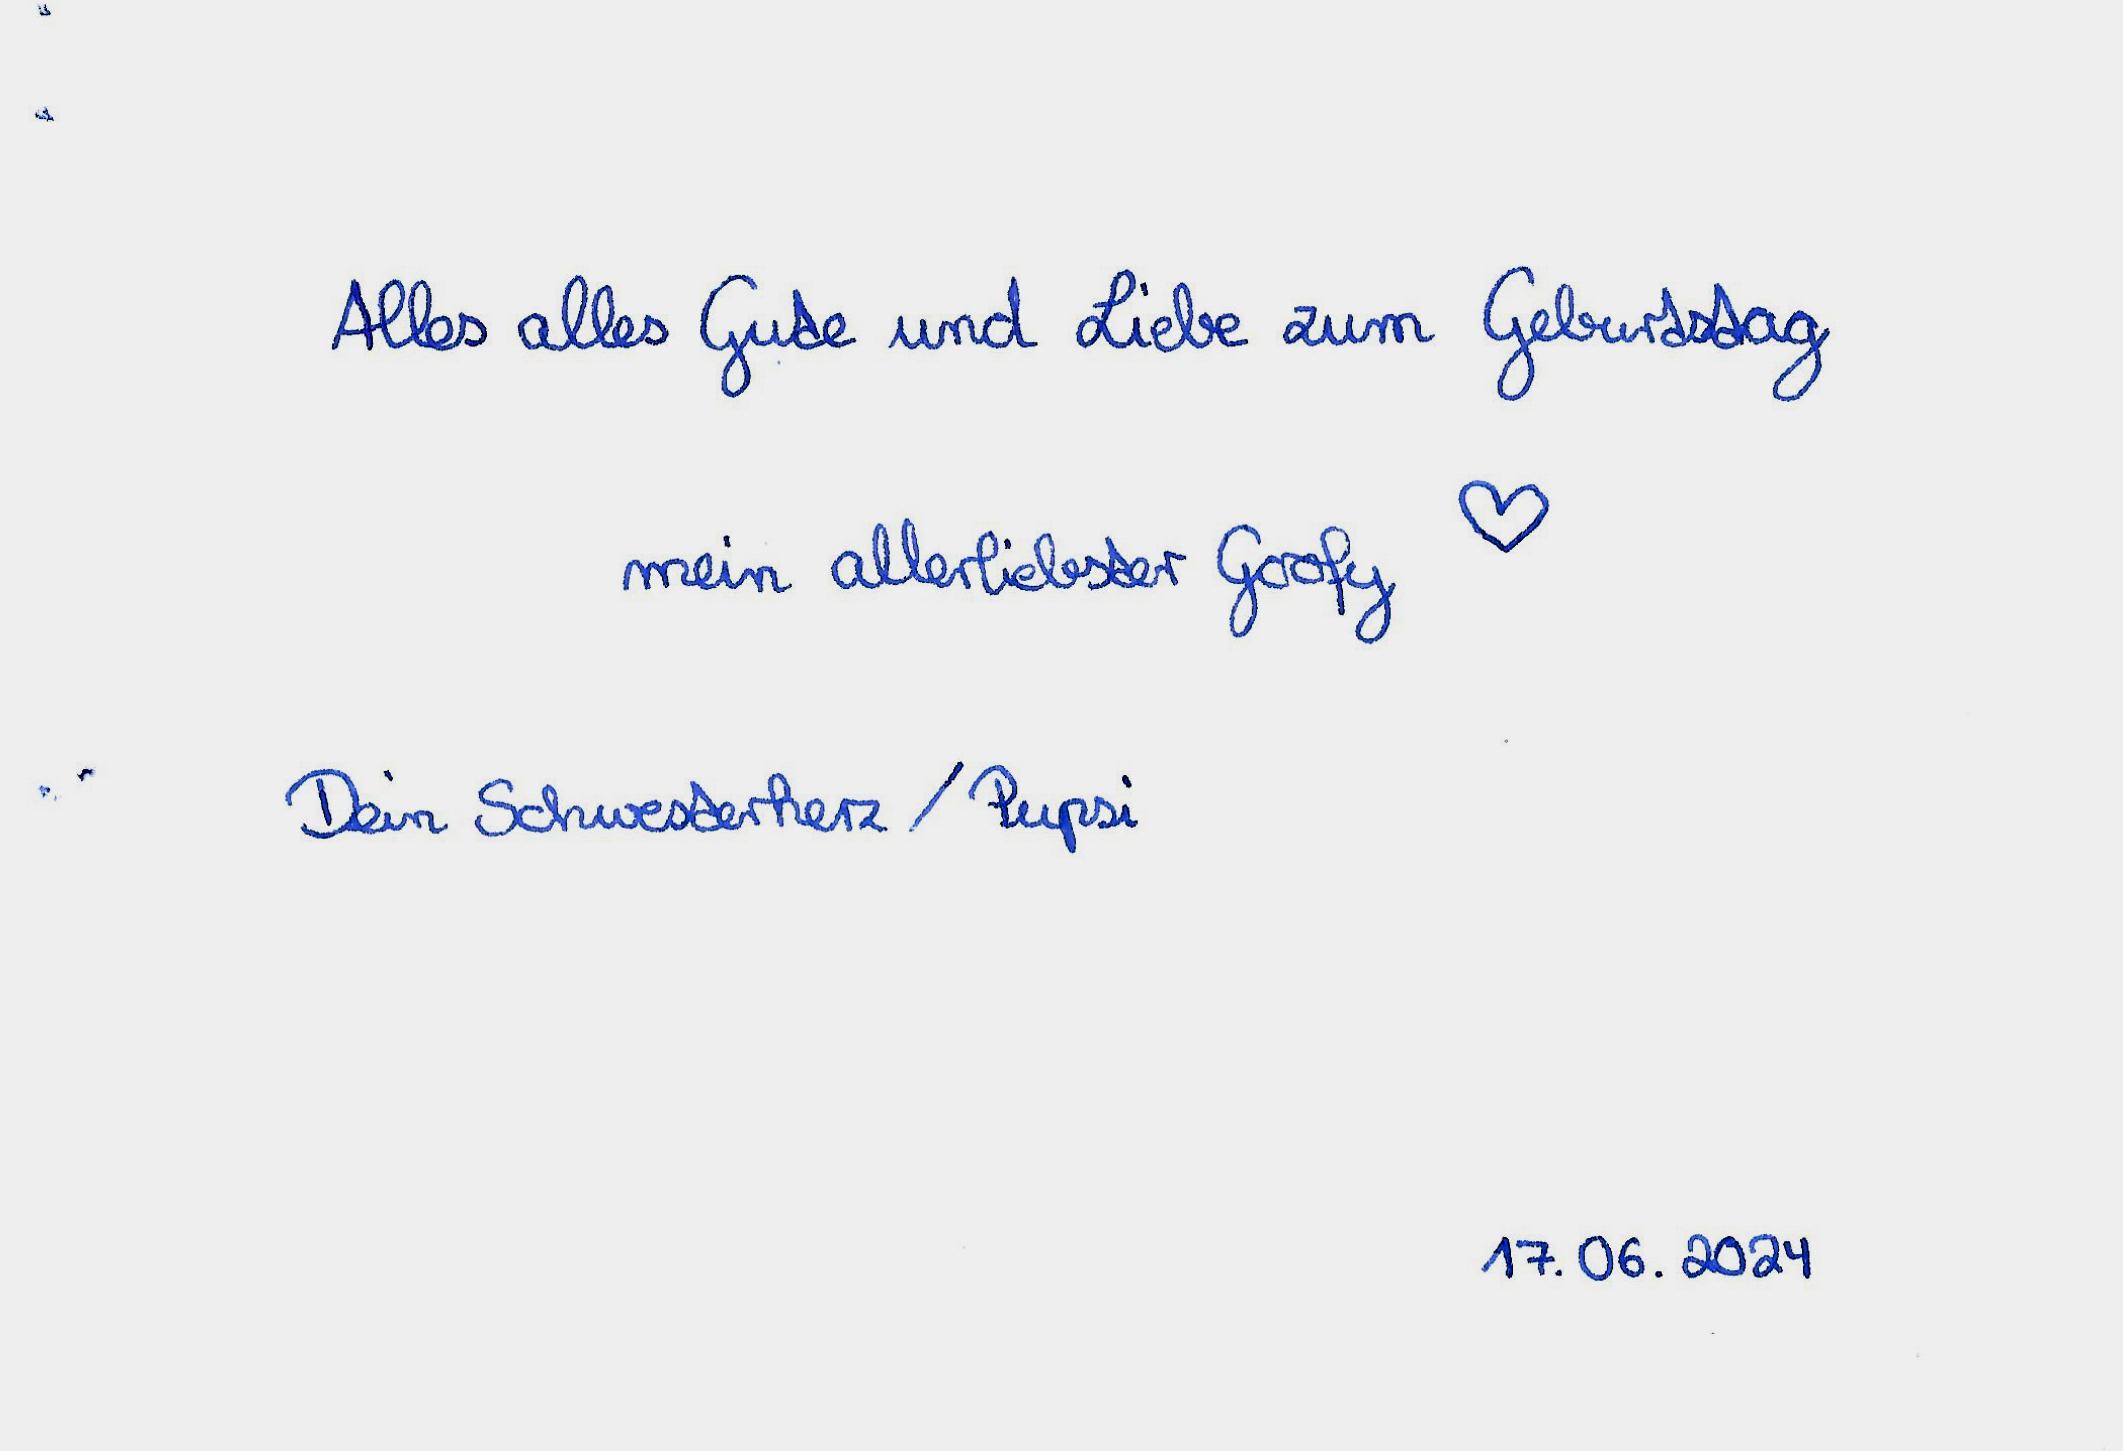 Alles alles Gute und Liebe zum Geburtstag
mein allerliebster Goofy ♡
Dein Schwesterherz / Pupsi
17.06.2024